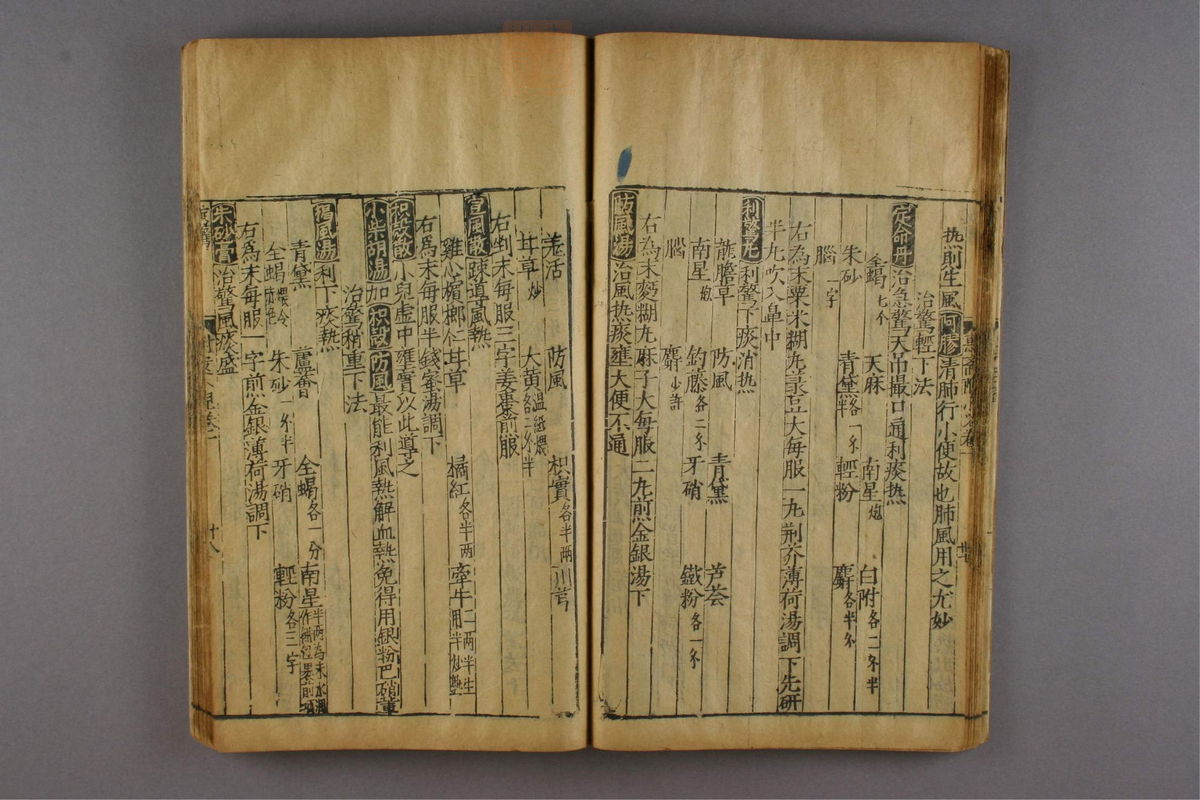 热則生風阿膠清肺行小便故也肺風用之尤妙
治驚輕下法
定命丹治急驚天吊撮口通利痰热
全蝎七个 天麻 南星炮 白附各二分半
朱砂 青黛各一分半 輕粉 麝各半分
腦一字
右為末粟米糊丸菉豆大每服一丸荆芥薄荷湯調下先研
半丸吹入鼻中
利驚丸利驚下痰消热
龍膽草 防風 青黛 芦荟
南星炮 钓藤各二分 牙硝 鐵粉各一分
腦 麝少許
右為末麪糊丸麻子大每服二丸煎金銀湯下
防風湯治風热痰壅大便不通
羌活 防風 枳實各半两 川芎
甘草炒 大黄温紙煨各二分半
右剉末每服三字姜棗煎服
宣風散疎道風熱
雞心檳榔仁 甘草 橘紅各半两 牽牛二两半生用半炒熟
右為末每服半錢蜜湯調下
枳殼散小兒虛中壅實以此導之
小柴胡湯加枳殼防風最能利風熱解血熱免得用銀粉巴硝輩
治驚稍重下法
揭風湯利下痰熱
青黛 蘆薈 全蝎各一分 南星半两為末水調作餅包裹前項
全蝎煨令赤色 朱砂一分半 牙硝 輕粉各三字
右為末每服一字煎金銀薄荷湯調下
朱砂膏治驚風痰盛
十八